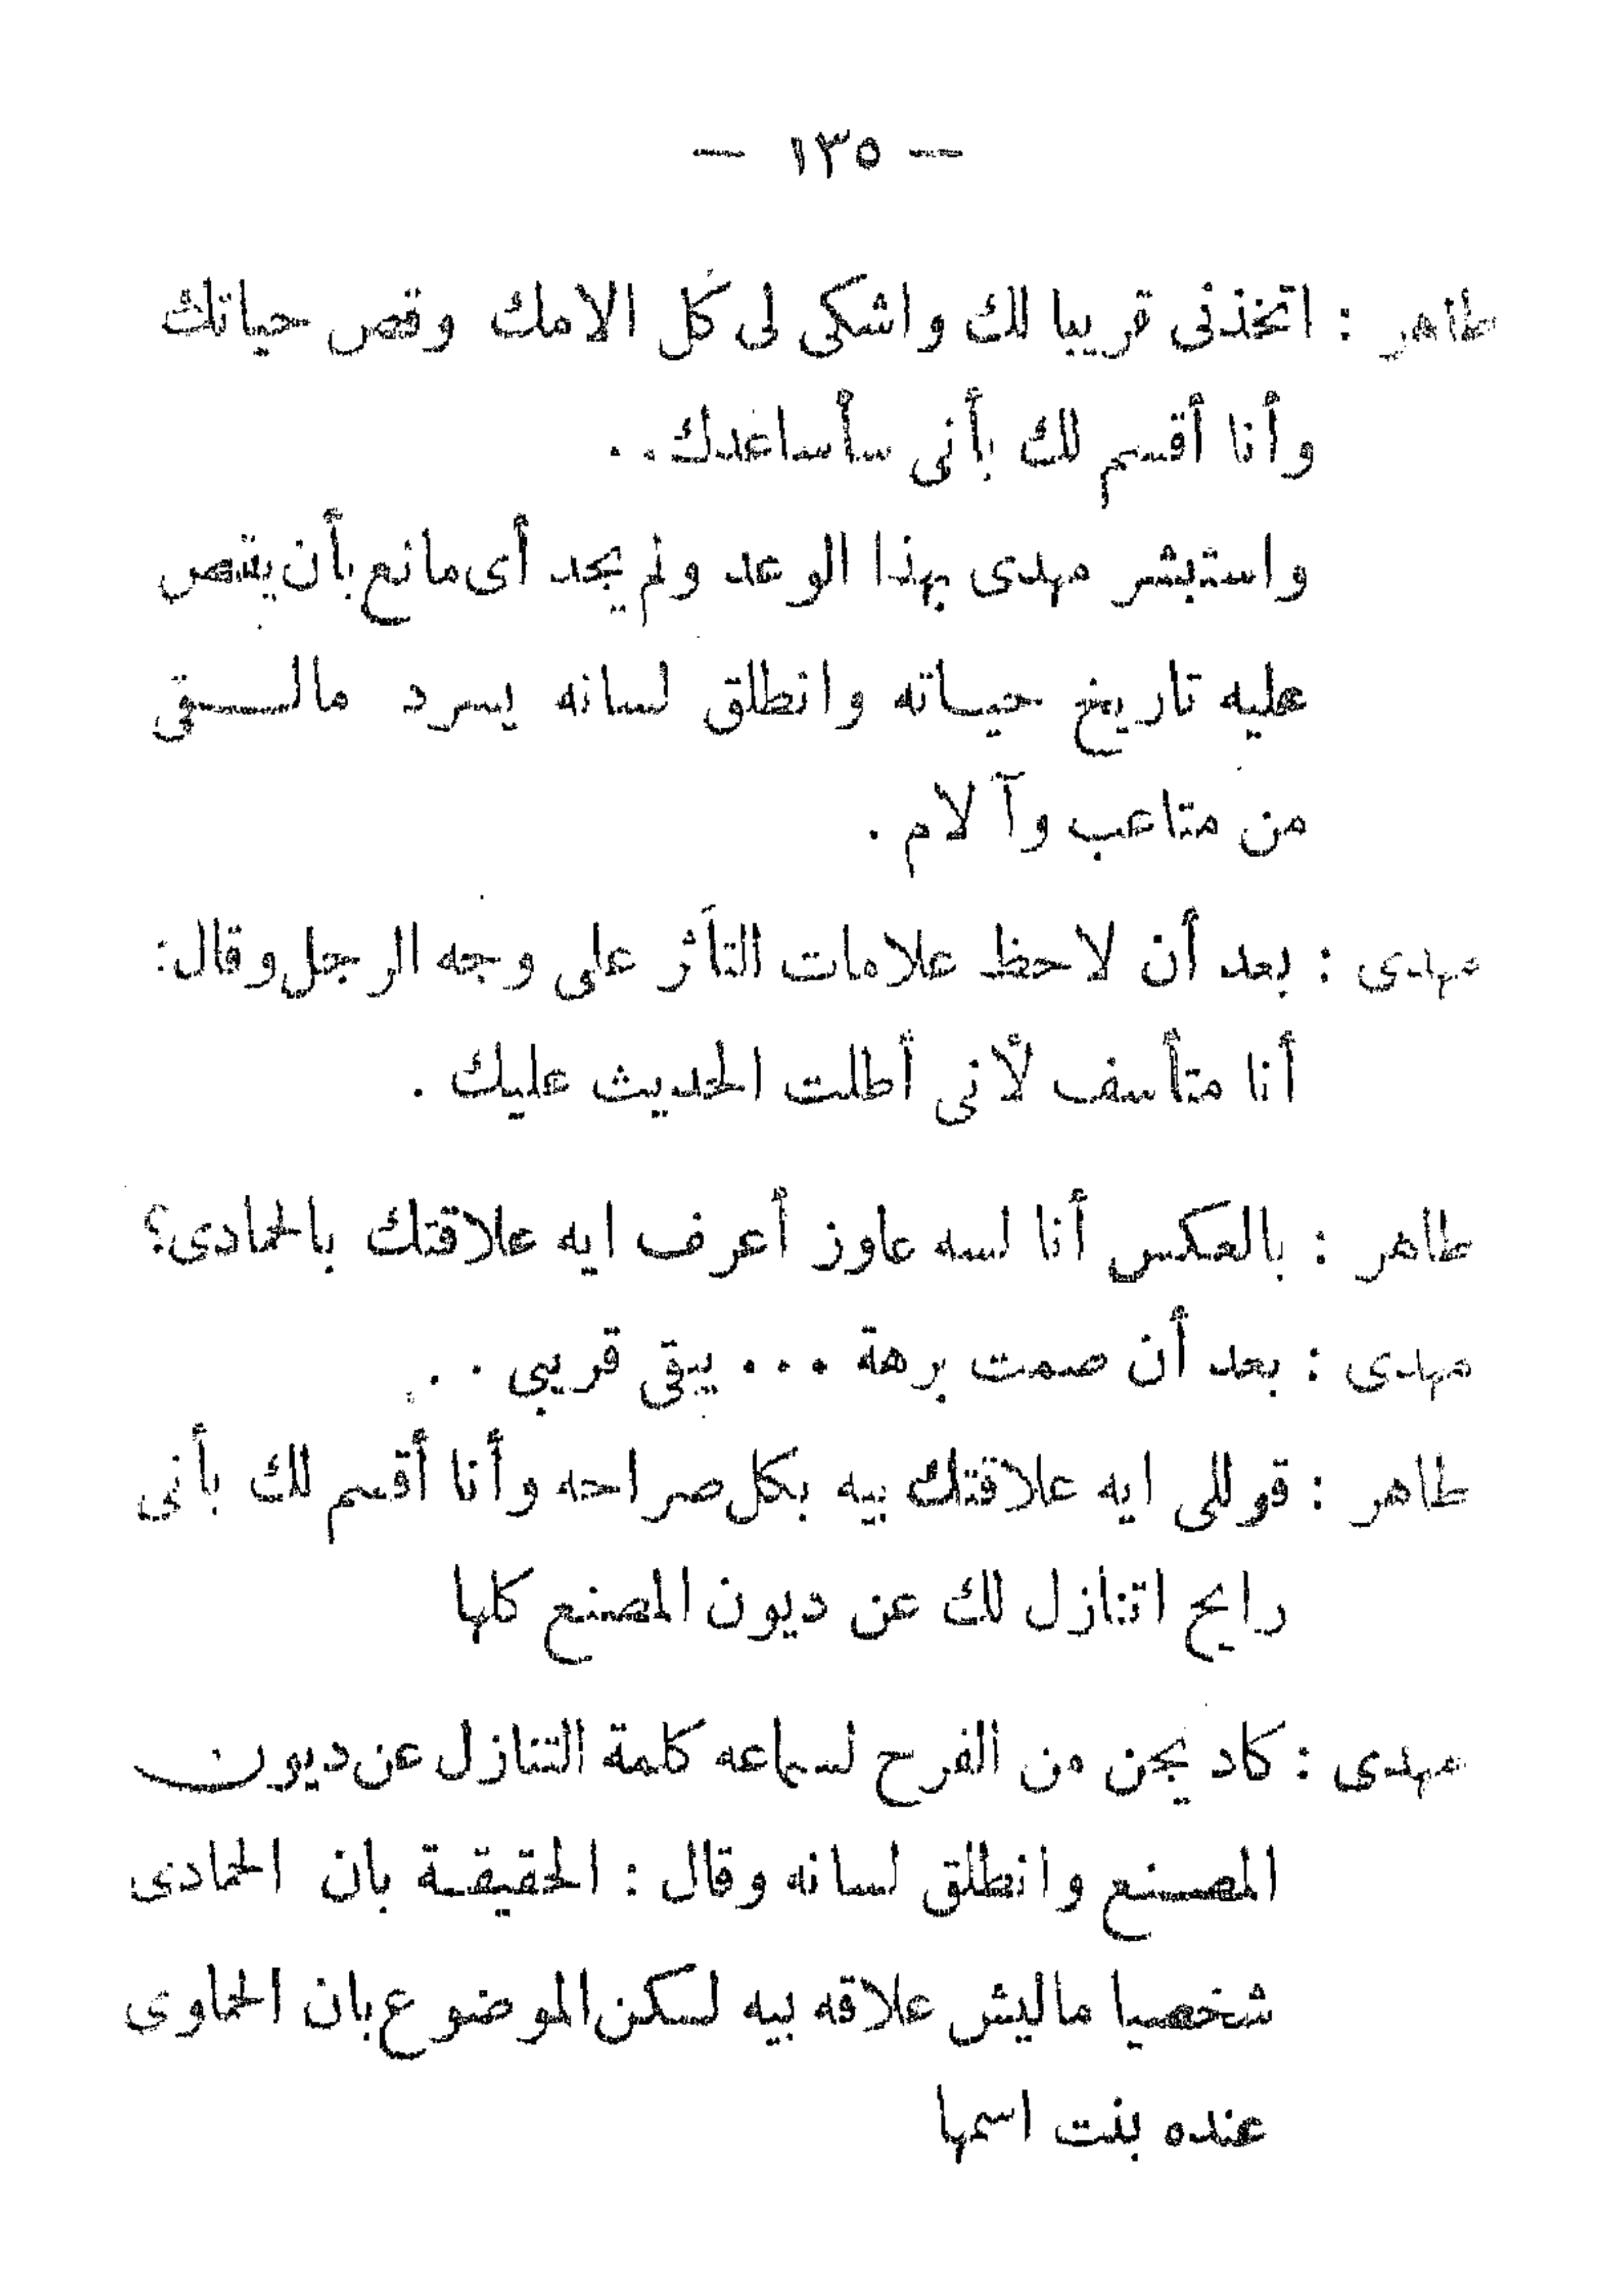 — ١٣٥ —
طاهر : اتخذنى قريبا لك واشكى لى كل الامك وقص حياتك
وأنا أقسم لك بأنى سأساعدك . .
واستبشر مهدى بهذا الوعد ولم يجد أى مانع بأن يقص
عليه تاريخ حياته وانطلق لسانه يسرد مالقى
من متاعب وآلام .
مهدى : بعد أن لاحظ علامات التأثر على وجه الرجل وقال :
أنا متأسف لأنى أطلت الحديث عليك .
طاهر : بالعكس أنا لسه عاوز أعرف ايه علاقتك بالحمادى؟
مهدى : بعد أن صمت برهة ... يبقى قريبى . .
طاهر : قوللى ايه علاقتك بيه بكل صراحه وأنا أقسم لك بأنى
رايح اتنازل لك عن ديون المصنع كلها
مهدى : كاد يجن من الفرح لسماعه كلمة التنازل عن ديون
المصنع وانطلق لسانه وقال : الحقيقة بان الحمادى
شخصيا ماليش علاقه بيه لكن الموضوع بان الحماوى
عنده بنت اسمها